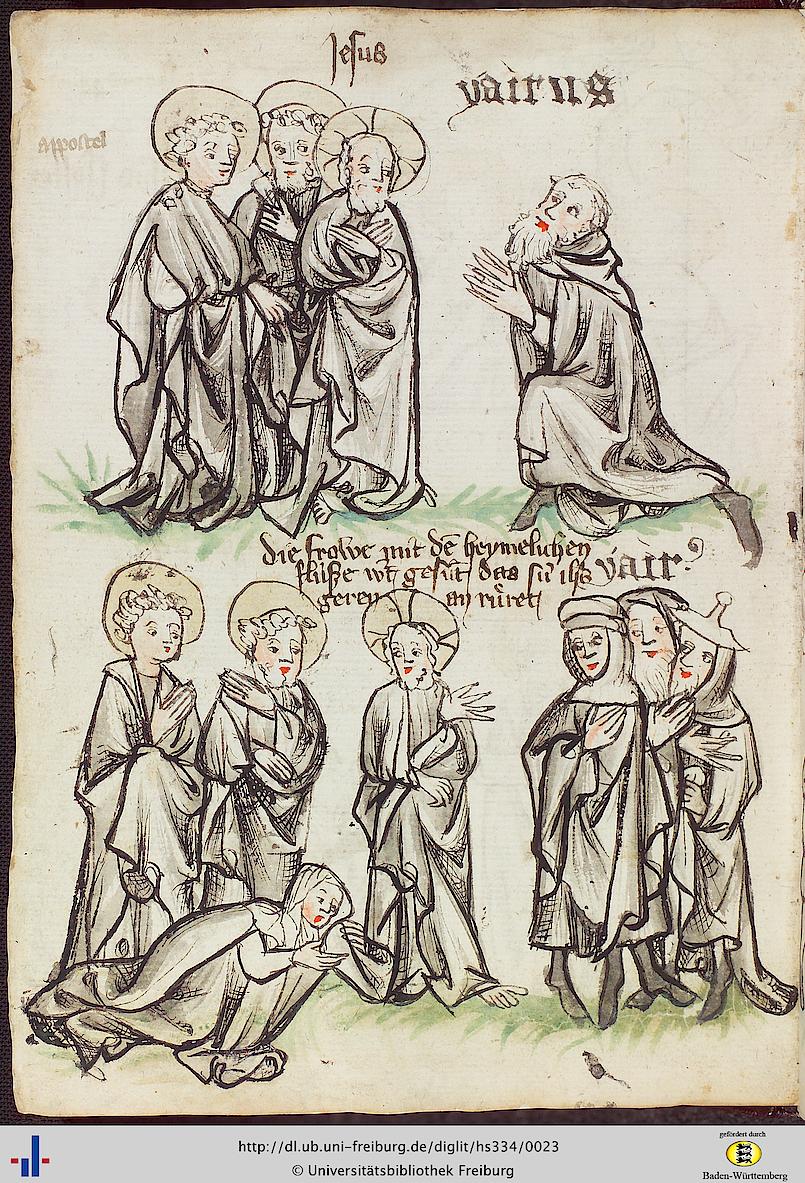 Jesus
yairus
appostel
die frowe mit dē heymelichen
flüße wt gesūt das sü ihs yair
geren an rüret
http://dl.ub.uni-freiburg.de/diglit/hs334/0023
© Universitätsbibliothek Freiburg
gefördert durch
Baden-Württemberg